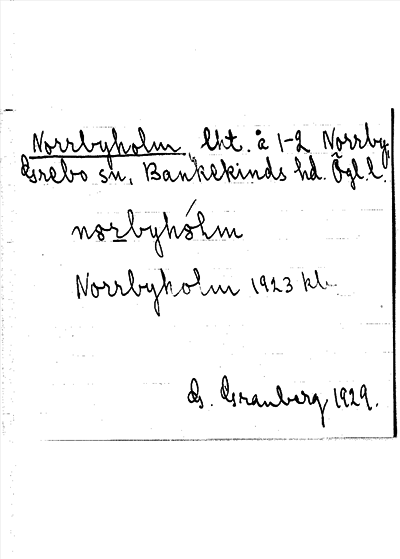 Norrbyholm, lht. å 1-2 Norrby,
Grebo sn, Bankekinds hd. Ögl.l.
norbyhólm
Norrbyholm 1923 kl.
G. Granberg 1929.